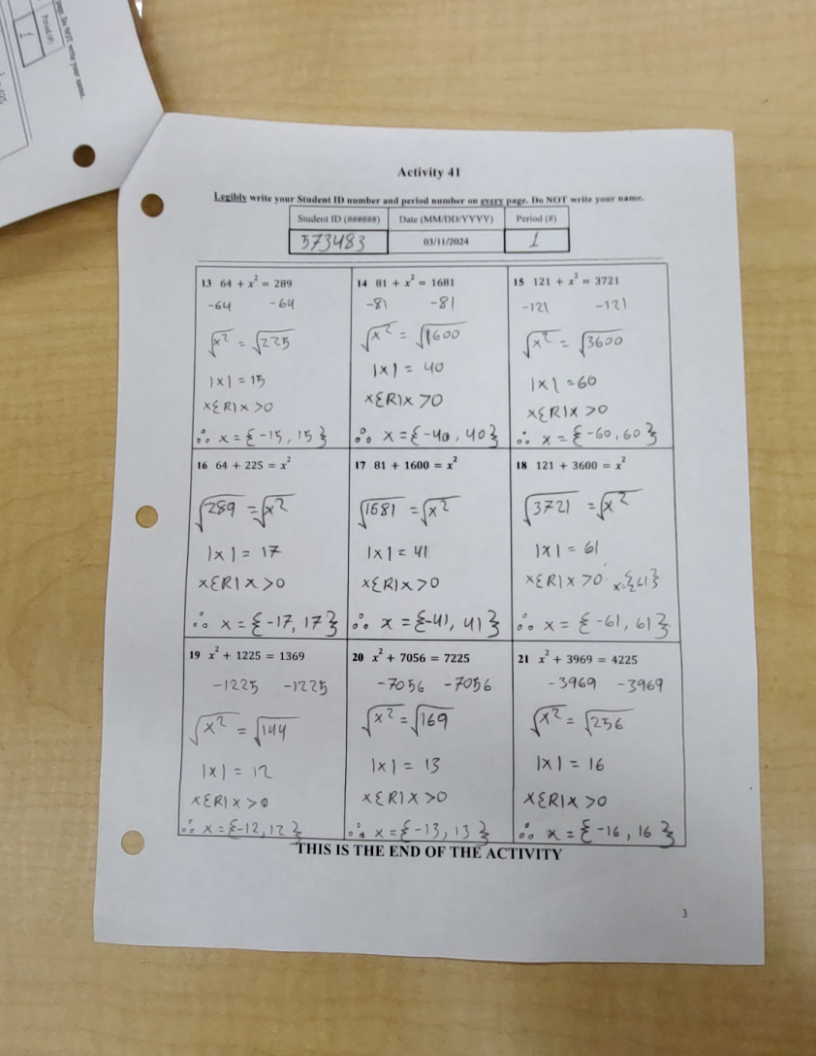 Period (#)
1
Activity 41
Legibly write your Student ID number and period number on every page. Do NOT write your name.
Student ID (######) Date (MM/DD/YYYY) Period (#)
573483 03/11/2024 1
13 64 + x² = 289
-64 -64
√x² = √225
|x| = 15
x{R|x >0
∴ x = {-15, 15}
14 81 + x² = 1681
-81 -81
√x² = √1600
|x| = 40
x{R|x >0
∴ x = {-40, 40}
15 121 + x² = 3721
-121 -121
√x² = √3600
|x| = 60
x{R|x >0
∴ x = {-60, 60}
16 64 + 225 = x²
√289 = √x²
|x| = 17
x{R|x >0
∴ x = {-17, 17}
17 81 + 1600 = x²
√1681 = √x²
|x| = 41
x{R|x >0
∴ x = {-41, 41}
18 121 + 3600 = x²
√3721 = √x²
|x| = 61
x{R|x >0 x={61}
∴ x = {-61, 61}
19 x² + 1225 = 1369
-1225 -1225
√x² = √144
|x| = 12
x{R|x >0
∴ x = {-12, 12}
20 x² + 7056 = 7225
-7056 -7056
√x² = √169
|x| = 13
x{R|x >0
∴ x = {-13, 13}
21 x² + 3969 = 4225
-3969 -3969
√x² = √256
|x| = 16
x{R|x >0
∴ x = {-16, 16}
THIS IS THE END OF THE ACTIVITY
3